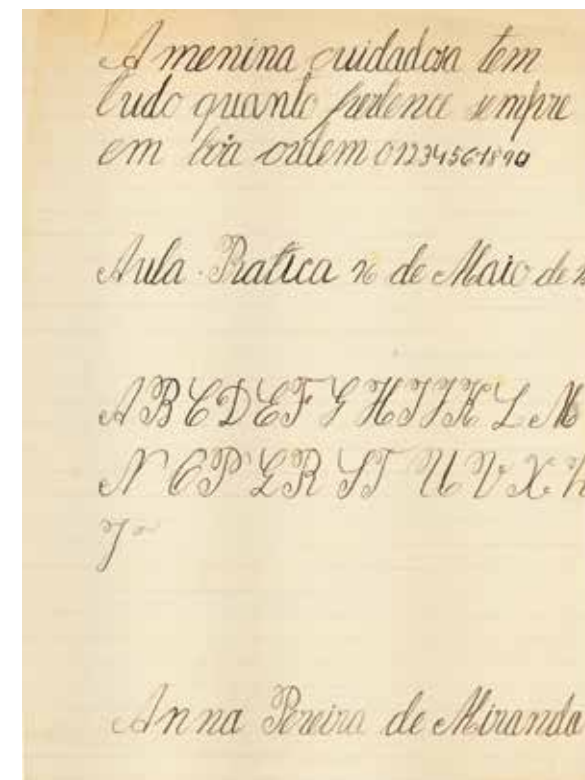 A menina cuidadosa tem
tudo quanto pertence sempre
em boa ordem 01234567890
Aula Pratica 26 de Maio de
A B C D E F G H I J K L M
N O P Q R S T U V X
Anna Pereira de Miranda